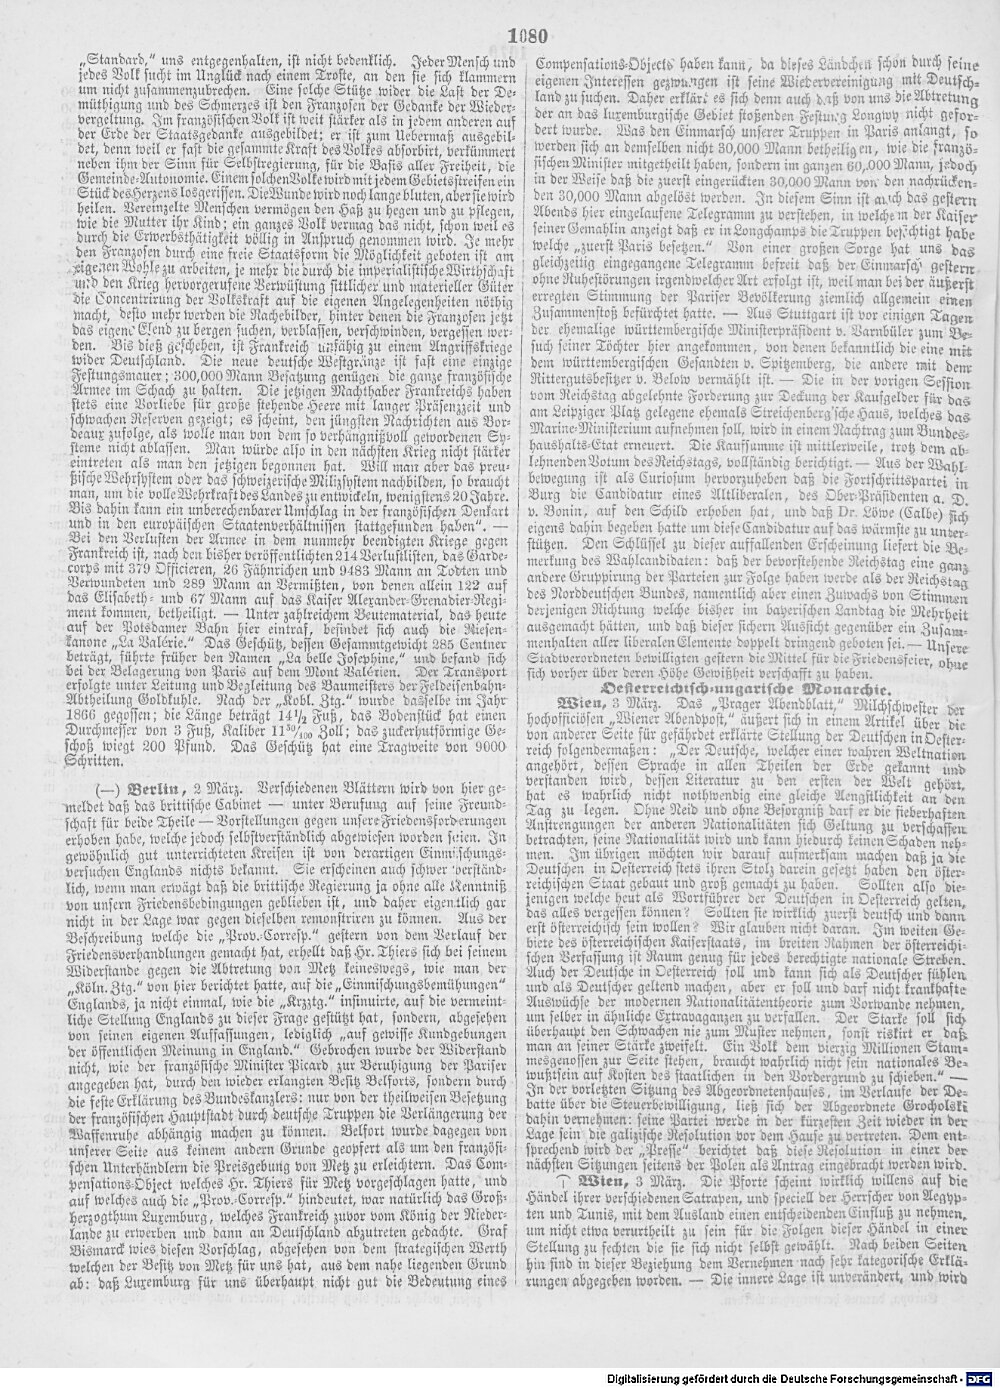 1080
„Standard,“ uns entgegenhalten, ist nicht bedenklich. Jeder Mensch und
jedes Volk sucht im Unglück nach einem Troste, an den sie sich klammern
um nicht zusammenzubrechen. Eine solche Stütze wider die Last der De-
müthigung und des Schmerzes ist den Franzosen der Gedanke der Wieder-
vergeltung. Im französischen Volk ist weit stärker als in jedem anderen auf
der Erde der Staatsgedanke ausgebildet; er ist zum Uebermaß ausgebil-
det, denn weil er fast die gesammte Kraft des Volkes absorbirt, verkümmert
neben ihm der Sinn für Selbstregierung, für die Basis aller Freiheit, die
Gemeinde-Autonomie. Einem solchen Volke wird mit jedem Gebietsstreifen ein
Stück des Herzens losgerissen. Die Wunde wird noch lange bluten, aber sie wird
heilen. Vereinzelte Menschen vermögen den Haß zu hegen und zu pflegen,
wie die Mutter ihr Kind; ein ganzes Volk vermag das nicht, schon weil es
durch die Erwerbsthätigkeit völlig in Anspruch genommen wird. Je mehr
den Franzosen durch eine freie Staatsform die Möglichkeit geboten ist am
eigenen Wohle zu arbeiten, je mehr die durch die imperialistische Wirthschaft
und den Krieg hervorgerufene Verwüstung sittlicher und materieller Güter
die Concentrirung der Volkskraft auf die eigenen Angelegenheiten nöthig
macht, desto mehr werden die Rachebilder, hinter denen die Franzosen jetzt
das eigene Elend zu bergen suchen, verblassen, verschwinden, vergessen wer-
den. Bis dieß geschehen, ist Frankreich unfähig zu einem Angriffskriege
wider Deutschland. Die neue deutsche Westgränze ist fast eine einzige
Festungsmauer; 300,000 Mann Besatzung genügen die ganze französische
Armee im Schach zu halten. Die jetzigen Machthaber Frankreichs haben
stets eine Vorliebe für große stehende Heere mit langer Präsenzzeit und
schwachen Reserven gezeigt; es scheint, den jüngsten Nachrichten aus Bor-
deaux zufolge, als wolle man von dem so verhängnißvoll gewordenen Sy-
steme nicht ablassen. Man würde also in den nächsten Krieg nicht stärker
eintreten als man den jetzigen begonnen hat. Will man aber das preu-
ßische Wehrsystem oder das schweizerische Milizsystem nachbilden, so braucht
man, um die volle Wehrkraft des Landes zu entwickeln, wenigstens 20 Jahre.
Bis dahin kann ein unberechenbarer Umschlag in der französischen Denkart
und in den europäischen Staatenverhältnissen stattgefunden haben“. —
Bei den Verlusten der Armee in dem nunmehr beendigten Kriege gegen
Frankreich ist, nach den bisher veröffentlichten 214 Verlustlisten, das Garde-
corps mit 379 Officieren, 26 Fähnrichen und 9483 Mann an Todten und
Verwundeten und 289 Mann an Vermißten, von denen allein 122 auf
das Elisabeth- und 67 Mann auf das Kaiser Alexander-Grenadier-Regi-
ment kommen, betheiligt. — Unter zahlreichem Beutematerial, das heute
auf der Potsdamer Bahn hier eintraf, befindet sich auch die Riesen-
kanone „La Valérie.“ Das Geschütz, dessen Gesammtgewicht 285 Centner
beträgt, führte früher den Namen „La belle Josephine,“ und befand sich
bei der Belagerung von Paris auf dem Mont Valérien. Der Transport
erfolgte unter Leitung und Begleitung des Baumeisters der Feldeisenbahn-
Abtheilung Goldkuhle. Nach der „Kobl. Ztg.“ wurde dasselbe im Jahr
1866 gegossen; die Länge beträgt 14½ Fuß, das Bodenstück hat einen
Durchmesser von 3 Fuß, Kaliber 11 30/100 Zoll; das zuckerhutförmige Ge-
schoß wiegt 200 Pfund. Das Geschütz hat eine Tragweite von 9000
Schritten.
(—) Berlin, 2 März. Verschiedenen Blättern wird von hier ge-
meldet daß das brittische Cabinet — unter Berufung auf seine Freund-
schaft für beide Theile — Vorstellungen gegen unsere Friedensforderungen
erhoben habe, welche jedoch selbstverständlich abgewiesen worden seien. In
gewöhnlich gut unterrichteten Kreisen ist von derartigen Einmischungs-
versuchen Englands nichts bekannt. Sie erscheinen auch schwer verständ-
lich, wenn man erwägt daß die brittische Regierung ja ohne alle Kenntniß
von unsern Friedensbedingungen geblieben ist, und daher eigentlich gar
nicht in der Lage war gegen dieselben remonstriren zu können. Aus der
Beschreibung welche die „Prov.-Corresp.“ gestern von dem Verlauf der
Friedensverhandlungen gemacht hat, erhellt daß Hr. Thiers sich bei seinem
Widerstande gegen die Abtretung von Metz keineswegs, wie man der
„Köln. Ztg.“ von hier berichtet hatte, auf die „Einmischungsbemühungen“
Englands, ja nicht einmal, wie die „Krzztg.“ insinuirte, auf die vermeint-
liche Stellung Englands zu dieser Frage gestützt hat, sondern, abgesehen
von seinen eigenen Auffassungen, lediglich „auf gewisse Kundgebungen
der öffentlichen Meinung in England.“ Gebrochen wurde der Widerstand
nicht, wie der französische Minister Picard zur Beruhigung der Pariser
angegeben hat, durch den wieder erlangten Besitz Belforts, sondern durch
die feste Erklärung des Bundeskanzlers: nur von der theilweisen Besetzung
der französischen Hauptstadt durch deutsche Truppen die Verlängerung der
Waffenruhe abhängig machen zu können. Belfort wurde dagegen von
unserer Seite aus keinem andern Grunde geopfert als um den französi-
schen Unterhändlern die Preisgebung von Metz zu erleichtern. Das Com-
pensations-Object welches Hr. Thiers für Metz vorgeschlagen hatte, und
auf welches auch die „Prov.-Corresp.“ hindeutet, war natürlich das Groß-
herzogthum Luxemburg, welches Frankreich zuvor vom König der Nieder-
lande zu erwerben und dann an Deutschland abzutreten gedachte. Graf
Bismarck wies diesen Vorschlag, abgesehen von dem strategischen Werth
welchen der Besitz von Metz für uns hat, aus dem nahe liegenden Grund
ab: daß Luxemburg für uns überhaupt nicht gut die Bedeutung eines
Compensations-Objects haben kann, da dieses Ländchen schon durch seine
eigenen Interessen gezwungen ist seine Wiedervereinigung mit Deutsch-
land zu suchen. Daher erklärt es sich denn auch daß von uns die Abtretung
der an das luxemburgische Gebiet stoßenden Festung Longwy nicht gefor-
dert wurde. Was den Einmarsch unserer Truppen in Paris anlangt, so
werden sich an demselben nicht 30,000 Mann betheiligen, wie die franzö-
sischen Minister mitgetheilt haben, sondern im ganzen 60,000 Mann, jedoch
in der Weise daß die zuerst eingerückten 30,000 Mann von den nachrücken-
den 30,000 Mann abgelöst werden. In diesem Sinn ist auch das gestern
Abends hier eingelaufene Telegramm zu verstehen, in welchem der Kaiser
seiner Gemahlin anzeigt daß er in Longchamps die Truppen besichtigt habe
welche „zuerst Paris besetzen.“ Von einer großen Sorge hat uns das
gleichzeitig eingegangene Telegramm befreit daß der Einmarsch gestern
ohne Ruhestörungen irgendwelcher Art erfolgt ist, weil man bei der äußerst
erregten Stimmung der Pariser Bevölkerung ziemlich allgemein einen
Zusammenstoß befürchtet hatte. — Aus Stuttgart ist vor einigen Tagen
der ehemalige württembergische Ministerpräsident v. Varnbüler zum Be-
such seiner Töchter hier angekommen, von denen bekanntlich die eine mit
dem württembergischen Gesandten v. Spitzemberg, die andere mit dem
Rittergutsbesitzer v. Below vermählt ist. — Die in der vorigen Session
vom Reichstag abgelehnte Forderung zur Deckung der Kaufgelder für das
am Leipziger Platz gelegene ehemals Streichenberg'sche Haus, welches das
Marine-Ministerium aufnehmen soll, wird in einem Nachtrag zum Bundes-
haushalts-Etat erneuert. Die Kaufsumme ist mittlerweile, trotz dem ab-
lehnenden Votum des Reichstags, vollständig berichtigt. — Aus der Wahl-
bewegung ist als Curiosum hervorzuheben daß die Fortschrittspartei in
Burg die Candidatur eines Altliberalen, des Ober-Präsidenten a. D.
v. Bonin, auf den Schild erhoben hat, und daß Dr. Löwe (Calbe) sich
eigens dahin begeben hatte um diese Candidatur auf das wärmste zu unter-
stützen. Den Schlüssel zu dieser auffallenden Erscheinung liefert die Be-
merkung des Wahlcandidaten: daß der bevorstehende Reichstag eine ganz
andere Gruppirung der Parteien zur Folge haben werde als der Reichstag
des Norddeutschen Bundes, namentlich aber einen Zuwachs von Stimmen
derjenigen Richtung welche bisher im bayerischen Landtag die Mehrheit
ausgemacht hätten, und daß dieser sichern Aussicht gegenüber ein Zusam-
menhalten aller liberalen Elemente doppelt dringend geboten sei. — Unsere
Stadtverordneten bewilligten gestern die Mittel für die Friedensfeier, ohne
sich vorher über deren Höhe Gewißheit verschafft zu haben.
Oesterreichisch-ungarische Monarchie.
Wien, 3 März. Das „Prager Abendblatt,“ Milchschwester der
hochofficiösen „Wiener Abendpost,“ äußert sich in einem Artikel über die
von anderer Seite für gefährdet erklärte Stellung der Deutschen in Oester-
reich folgendermaßen: „Der Deutsche, welcher einer wahren Weltnation
angehört, dessen Sprache in allen Theilen der Erde gekannt und
verstanden wird, dessen Literatur zu den ersten der Welt gehört,
hat es wahrlich nicht nothwendig eine gleiche Aengstlichkeit an den
Tag zu legen. Ohne Neid und ohne Besorgniß darf er die fieberhaften
Anstrengungen der anderen Nationalitäten sich Geltung zu verschaffen
betrachten, seine Nationalität wird und kann hiedurch keinen Schaden neh-
men. Im übrigen möchten wir darauf aufmerksam machen daß ja die
Deutschen in Oesterreich stets ihren Stolz darein gesetzt haben den öster-
reichischen Staat gebaut und groß gemacht zu haben. Sollten also die-
jenigen welche heut als Wortführer der Deutschen in Oesterreich gelten,
das alles vergessen können? Sollten sie wirklich zuerst deutsch und dann
erst österreichisch sein wollen? Wir glauben nicht daran. Im weiten Ge-
biete des österreichischen Kaiserstaats, im breiten Rahmen der österreichi-
schen Verfassung ist Raum genug für jedes berechtigte nationale Streben.
Auch der Deutsche in Oesterreich soll und kann sich als Deutscher fühlen
und als Deutscher geltend machen, aber er soll und darf nicht krankhafte
Auswüchse der modernen Nationalitätentheorie zum Vorwande nehmen,
um selber in ähnliche Extravaganzen zu verfallen. Der Starke soll sich
überhaupt den Schwachen nie zum Muster nehmen, sonst riskirt er daß
man an seiner Stärke zweifelt. Ein Volk dem vierzig Millionen Stam-
mesgenossen zur Seite stehen, braucht wahrlich nicht sein nationales Be-
wußtsein auf Kosten des staatlichen in den Vordergrund zu schieben.“ —
In der vorletzten Sitzung des Abgeordnetenhauses, im Verlaufe der De-
batte über die Steuerbewilligung, ließ sich der Abgeordnete Grocholski
dahin vernehmen: seine Partei werde in der kürzesten Zeit wieder in der
Lage sein die galizische Resolution vor dem Hause zu vertreten. Dem ent-
sprechend wird der „Presse“ berichtet daß diese Resolution in einer der
nächsten Sitzungen seitens der Polen als Antrag eingebracht werden wird.
† Wien, 3 März. Die Pforte scheint wirklich willens auf die
Händel ihrer verschiedenen Satrapen, und speciell der Herrscher von Aegyp-
ten und Tunis, mit dem Ausland einen entscheidenden Einfluß zu nehmen,
um nicht etwa verurtheilt zu sein für die Folgen dieser Händel in einer
Stellung zu fechten die sie sich nicht selbst gewählt. Nach beiden Seiten
hin sind in dieser Beziehung dem Vernehmen nach sehr kategorische Erklä-
rungen abgegeben worden. — Die innere Lage ist unverändert, und wird
Digitalisierung gefördert durch die Deutsche Forschungsgemeinschaft - DFG